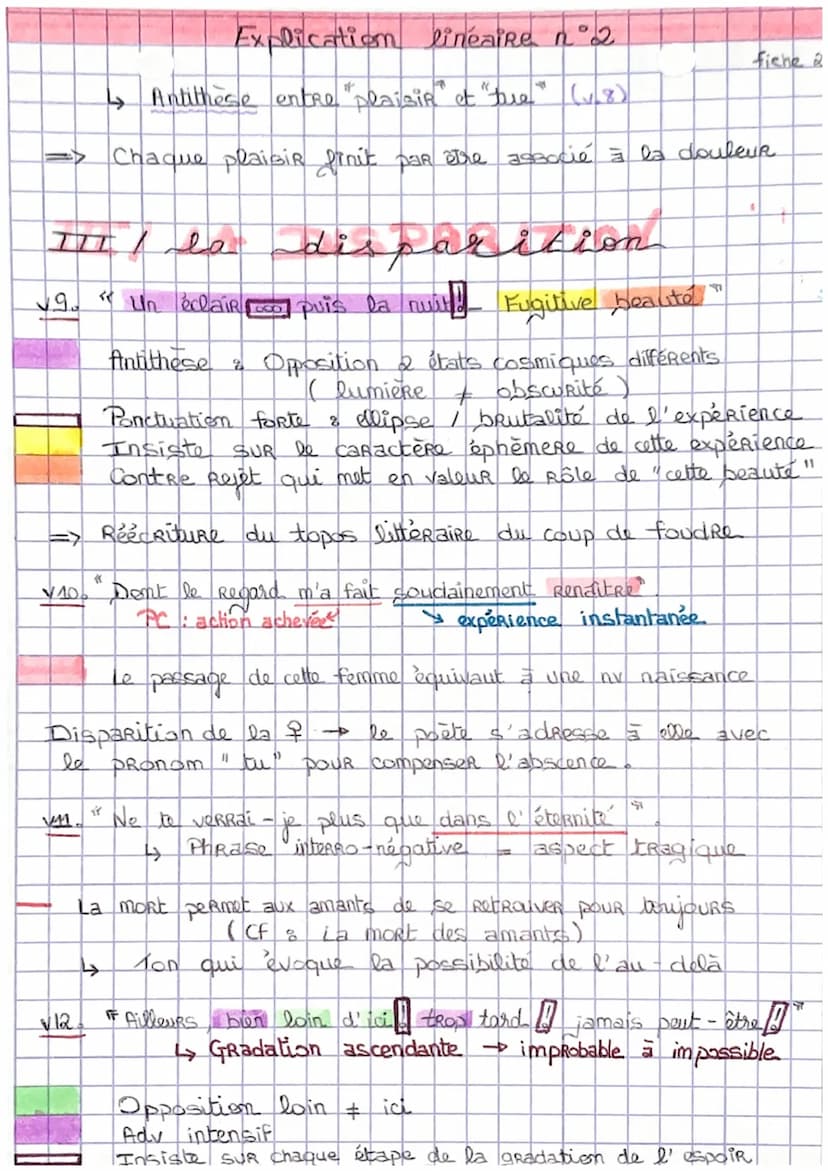 Explication linéaire n°2
fiche 2
↳ Antithèse entre "plaisir" et "tue" (v.8)
=> Chaque plaisir finit par être associé à la douleur
III / la disparition
v9. " Un éclair... puis la nuit ! – Fugitive beauté "
Antithèse : Opposition 2 états cosmiques différents
( lumière ≠ obscurité )
Ponctuation forte : ellipse / brutalité de l'expérience
Insiste sur le caractère éphèmere de cette expérience
Contre rejet qui met en valeur le rôle de "cette beauté"
=> Réécriture du topos littéraire du coup de foudre
v10. " Dont le regard m'a fait soudainement renaître "
PC : action achevée ↘ expérience instantanée
Le passage de cette femme équivaut à une nv naissance
Disparition de la ♀ → le poète s'adresse à elle avec
le pronom " tu " pour compenser l'abscence.
v11. " Ne te verrai-je plus que dans l'éternité ".
↳ Phrase interro-négative = aspect tragique
La mort permet aux amants de se retrouver pour toujours
( Cf : La mort des amants )
↳ Ton qui évoque la possibilité de l'au-delà
v12. " Ailleurs, bien loin d'ici ! trop tard ! jamais peut-être ! "
↳ Gradation ascendante → improbable à impossible
Opposition loin ≠ ici
Adv intensif
Insiste sur chaque étape de la gradation de l'espoir